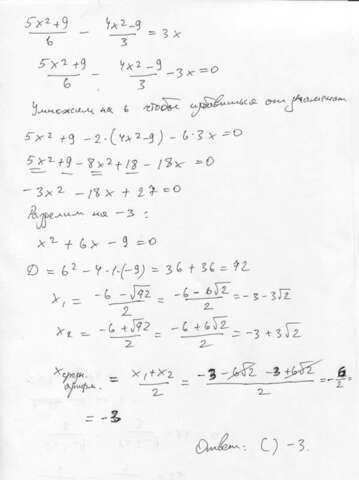 5x²+9/6 - 4x²-9/3 = 3x
5x²+9/6 - 4x²-9/3 - 3x = 0
Умножим на 6 чтобы избавиться от знаменат.
5x² + 9 - 2·(4x²-9) - 6·3x = 0
5x² + 9 - 8x² + 18 - 18x = 0
-3x² - 18x + 27 = 0
Разделим на -3:
x² + 6x - 9 = 0
D = 6² - 4·1·(-9) = 36 + 36 = 72
x₁ = -6 - √72/2 = -6 - 6√2/2 = -3 - 3√2
x₂ = -6 + √72/2 = -6 + 6√2/2 = -3 + 3√2
x средн. арифм. = x₁ + x₂/2 = -3 - 6√2 - 3 + 6√2/2 = -6/2 =
= -3
Ответ: C) -3.